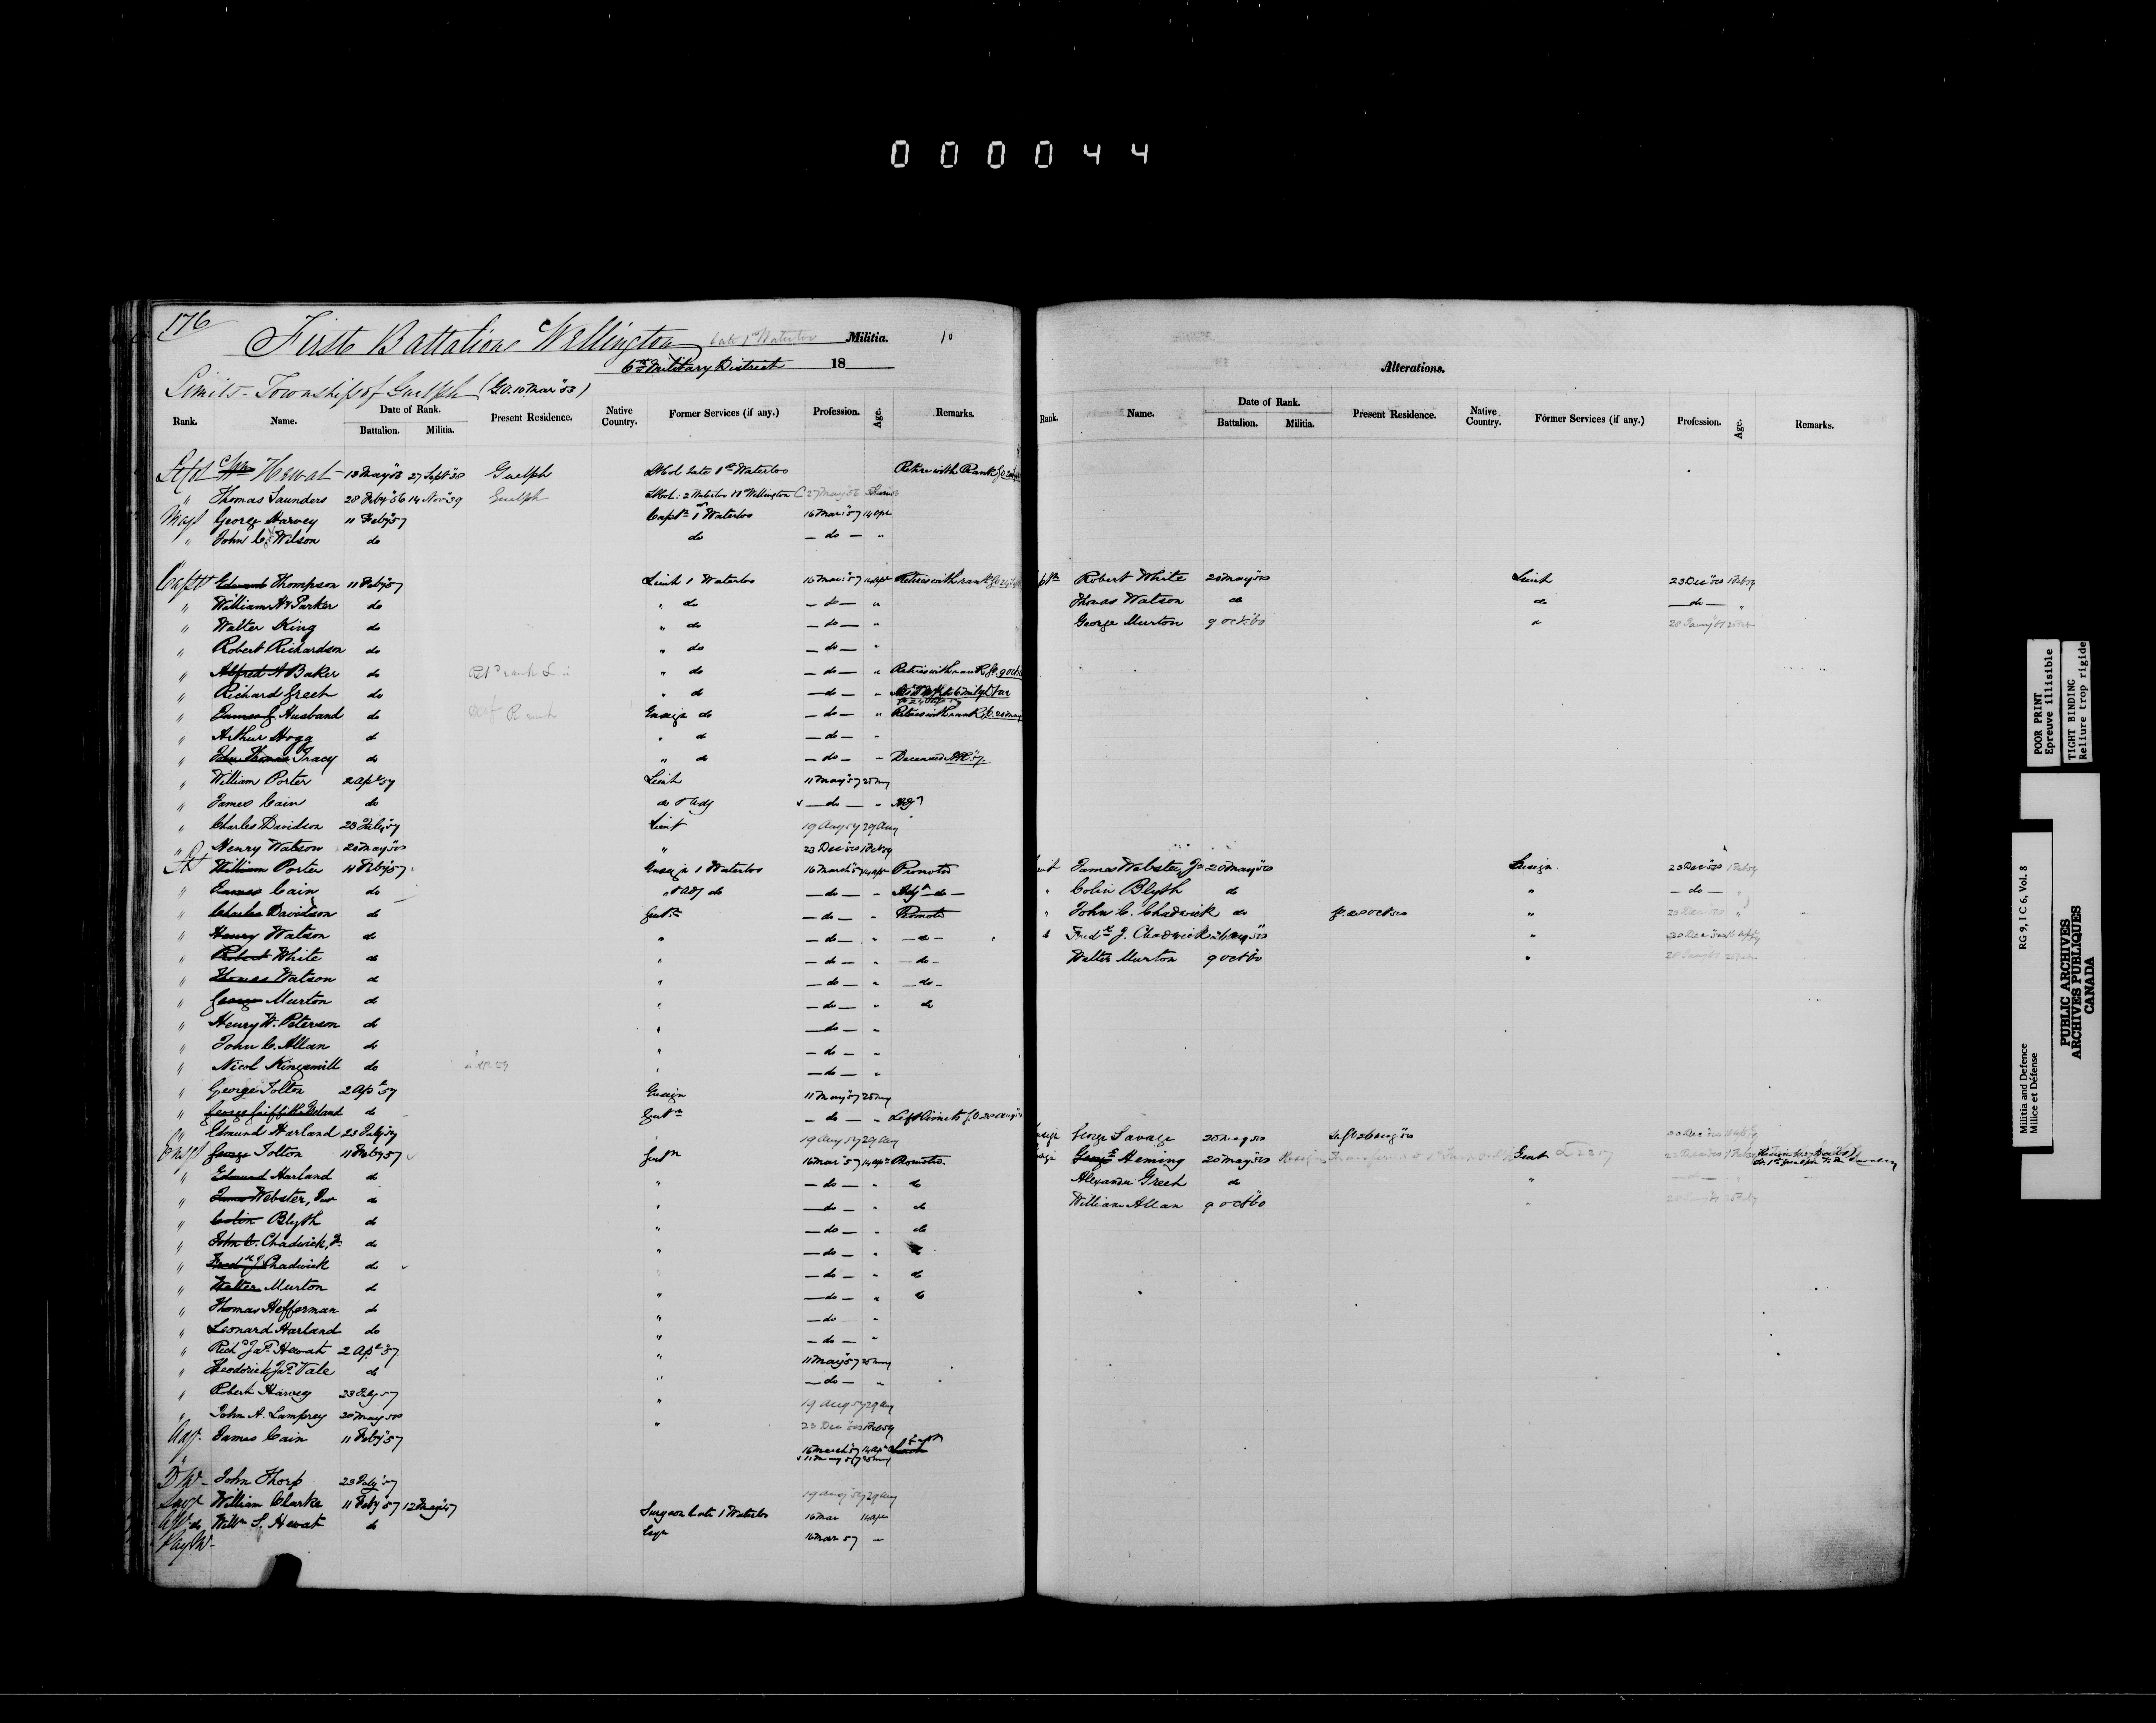 000044
176
First Battalion Wellington late 1st Waterloo Militia. 10
6th Military District 18
Limits - Township of Guelph (G.O. 10 Mar '53)
Rank. Name. Date of Rank. Battalion. Militia. Present Residence. Native Country. Former Services (if any.) Profession. Age. Remarks.
Lt Col Hewat 13 May 27 Sept '38 Guelph Lt Col late 1st Waterloo Retires with Rank
" Thomas Saunders 28 Feby '56 14 Nov '39 Guelph Lt Col: 2 Waterloo Wellington 27 May '56
Majr George Harvey 11 Feby '57 Captn 1st Waterloo 16 Mar '57 14 Apr
" John C. Wilson do do — do — "
Captn Edward Thompson 11 Feby '57 Lieut 1 Waterloo 16 Mar '57 14 Apr Retires with rank
" William H Parker do " do — do — "
" Walter King do " do — do — "
" Robert Richardson do " do — do — "
" Alfred A Baker do " do — do — " Retires with rank G.O. 9 Oct
" Richard Greet do " do — do — "
" James J. Husband do Ensign do — do — " Retires with rank G.O. 20 May
" Arthur Hogg do " do — do — "
" John Thomas Tracy do " do — do — " Deceased
" William Porter 2 Apl 57 Lieut 11 May '57 25 May
" James Cain do do & Adj — do — " Adjt
" Charles Davidson 23 July '57 Lieut 19 Aug 57 29 Aug
" Henry Watson 20 May '58 " 23 Dec '58 1 Feb 59
Lt William Porter 11 Feby '57 Ensign 1 Waterloo 16 March '57 14 Apr Promoted
" James Cain do " & Adj do — do — " Adjt — do —
" Charles Davidson do Gentn — do — " Promoted
" Henry Watson do " — do — " — do —
" Robert White do " — do — " — do —
" Thomas Watson do " — do — " — do —
" George Murton do " — do — " do
" Henry W. Peterson do " — do — "
" John C. Allan do " — do — "
" Nicol Kingsmill do " — do — "
" George Tolton 2 Apl 57 Ensign 11 May '57 25 May
" George Griffith do Gentn — do — " Left Limits G.O. 20 Aug
" Edmund Harland 23 July '57 19 Aug 57 29 Aug
Ensgn George Tolton 11 Feby 57 Gentn 16 Mar '57 14 Apr Promoted.
" Edmund Harland do " — do — " do
" James Webster, Junr do " — do — " do
" Colin Blyth do " — do — " do
" John C. Chadwick, Jr do " — do — " do
" Fredk J. Chadwick do " — do — " do
" Walter Murton do " — do — " do
" Thomas Hefferman do " — do — "
" Leonard Harland do " — do — "
" Richd Jas Hewat 2 Apl 57 " 11 May '57 25 May
" Theodorick Jas Vale do " — do — "
" Robert Harvey 23 July 57 " 19 Aug 57 29 Aug
" John A. Lamprey 20 May 58 " 23 Dec '58 1 Feb 59
Adjt. James Cain 11 Feby '57 16 March '57 14 Apr Captn
11 May 57 25 May
Qr Mr John Thorp 23 July '57 19 Aug '57 29 Aug
Surgn William Clarke 11 Feby 57 12 May '47 Surgeon late 1 Waterloo 16 Mar 14 Apr
Asst do Willm S. Hewat do Esqr 16 Mar 57 —
Paymr
Alterations.
Rank. Name. Date of Rank. Battalion. Militia. Present Residence. Native Country. Former Services (if any.) Profession. Age. Remarks.
Captn Robert White 20 May '58 Lieut 23 Dec '58 1 Feb 59
Thomas Watson do do — do — "
George Murton 9 Oct '60 do
Lieut James Webster, Jr 20 May '58 Ensign 23 Dec '58 1 Feb 59
" Colin Blyth do " — do — "
" John C. Chadwick do "
Fredk J. Chadwick "
Walter Murton 9 Oct '60 "
Ensign George Savage 20 May '58
George Heming 20 May '58 Gent
Alexander Greet do "
William Allan 9 Oct '60 "
POOR PRINT
Epreuve illisible
TIGHT BINDING
Reliure trop rigide
Militia and Defence
Milice et Défense
RG 9, I C 6, Vol. 8
PUBLIC ARCHIVES
ARCHIVES PUBLIQUES
CANADA